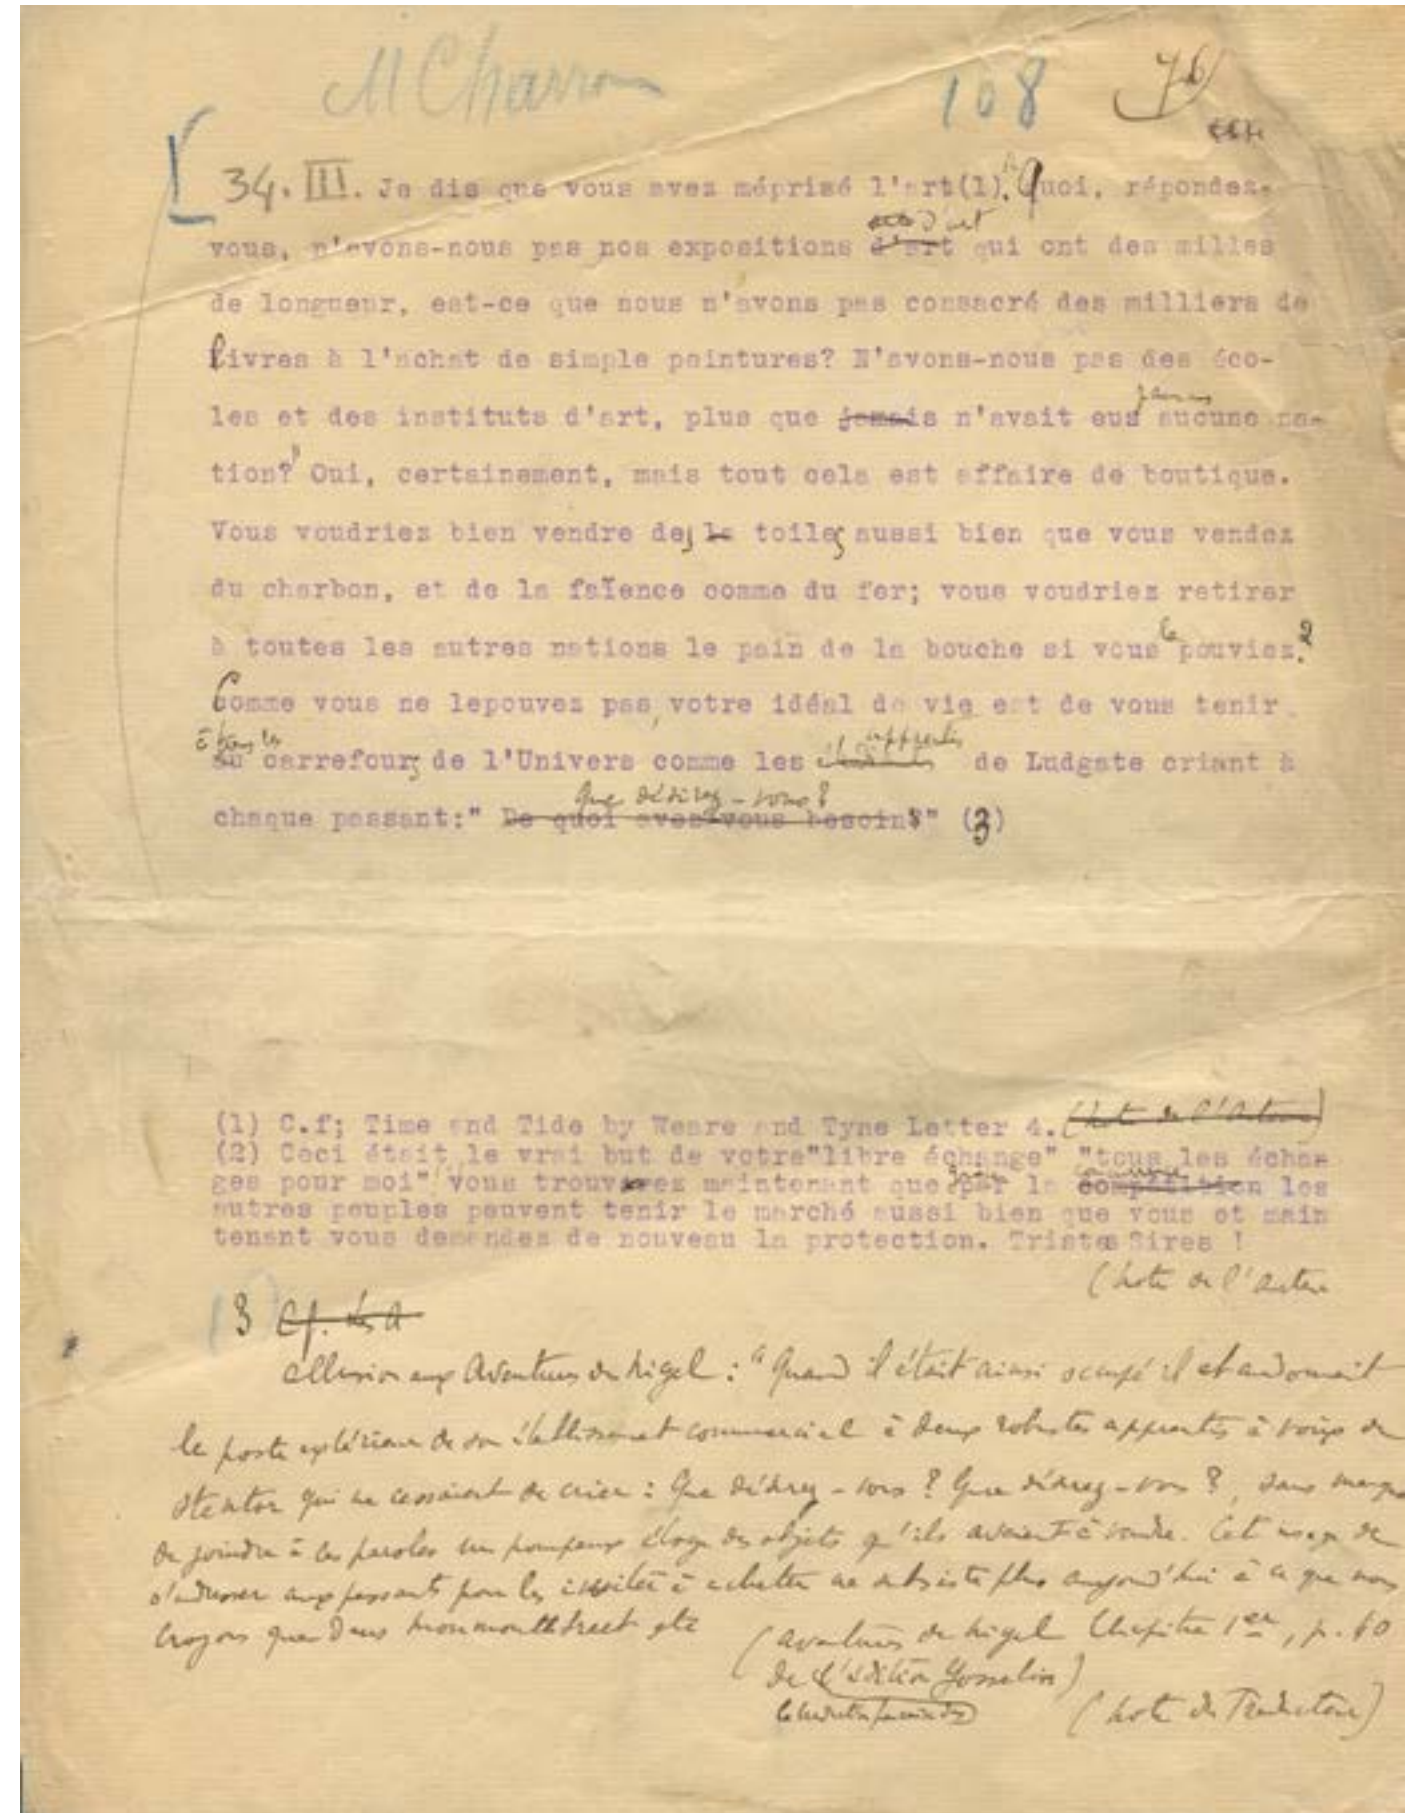 M Charron 108 76
34. III. Je dis que vous avez méprisé l'art(1). "Quoi, répondez-
d'art
vous, n'avons-nous pas nos expositions d'art qui ont des milles
de longueur, est-ce que nous n'avons pas consacré des milliers de
livres à l'achat de simple peintures? N'avons-nous pas des éco-
jamais
les et des instituts d'art, plus que jamais n'avait eus aucune na-
tion?" Oui, certainement, mais tout cela est affaire de boutique.
Vous voudriez bien vendre des la toiles aussi bien que vous vendez
du charbon, et de la faïence comme du fer; vous voudriez retirer
à toutes les autres nations le pain de la bouche si vous le pouviez.2
Comme vous ne lepouvez pas, votre idéal de vie est de vous tenir
à tous les apprentis
au carrefours de l'Univers comme les de Ludgate criant à
Que désirez-vous?
chaque passant:" De quoi avez-vous besoin?" (3)
(1) C.f; Time and Tide by Weare and Tyne Letter 4. (Note de l'Auteur)
(2) Ceci était le vrai but de votre"libre échange" "tous les échan-
pour
ges pour moi" vous trouverez maintenant que par la compétition les
autres peuples peuvent tenir le marché aussi bien que vous et main
tenant vous demandez de nouveau la protection. Tristes Sires !
(Note de l'auteur
3 Cf. les A
allusion aux Aventures de Nigel : "Quand il était ainsi occupé il abandonnait
le poste extérieur de son établissement commercial à deux robustes apprentis à voix de
stentor qui ne cessaient de crier : Que désirez-vous ? Que désirez-vous ?, sans manquer
de joindre à ces paroles un pompeux éloge des objets qu'ils avaient à vendre. Cet usage de
s'adresser aux passants pour les inviter à acheter ne subsiste plus aujourd'hui à ce que nous
croyons que dans Monmouthstreet etc
(Aventures de Nigel Chapitre 1er, p. 60
de l'édition Gosselin)
(Note du Traducteur)